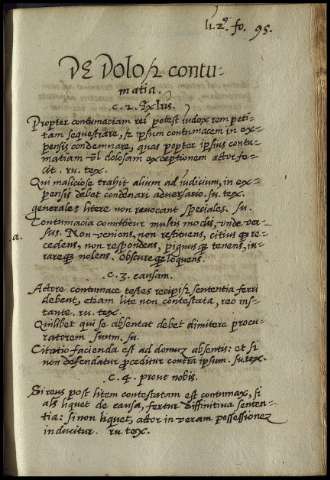 li. 2. fo. 95.
DE Dolo, & contu-
matia.
c. 2. Ex lris.
Propter contumaciam rei potest iudex rem peti-
tam sequestrare, & ipsum contumacem in ex-
pensis condemnare, quas propter ipsius contu-
matiam vel dolosam exceptionem actor fe-
cit. ru. tex.
Qui maliciose trahit alium ad iudicium, in ex-
pensis debet condenari adversario. su. tex.
generales litere non revocant speciales. su.
Contumacia comittitur multis modis, unde ver-
sus. Non veniens, non restituens, citius que re-
a.
cedens, non respondens, pignus que tenens, iu-
rareque nolens. obscureque loquens.
c. 3. causam.
Actore contumace testes recipi, & sententia ferri
debent, etiam lite non contestata, reo ins-
tante. ru. tex.
Quilibet qui se absentat debet dimitere procu-
ratorem. sum. su.
Citatio facienda est ad domum absentis: et si
non defendatur proceditur contra ipsum. su. tex.
c. 4. prout nobis.
Si reus post litem contestatam est contumax, si
aliis liquet de causa, fertur diffinitiva senten-
tia: si non liquet, actor in veram possessionem
inducitur. ru. tex.